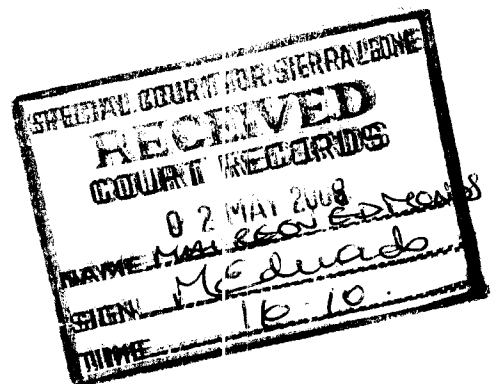 SPECIAL COURT FOR SIERRA LEONE
RECEIVED
COURT RECORDS
02 MAY 2008
NAME EDMONDS
SIGN
TIME 16.10.